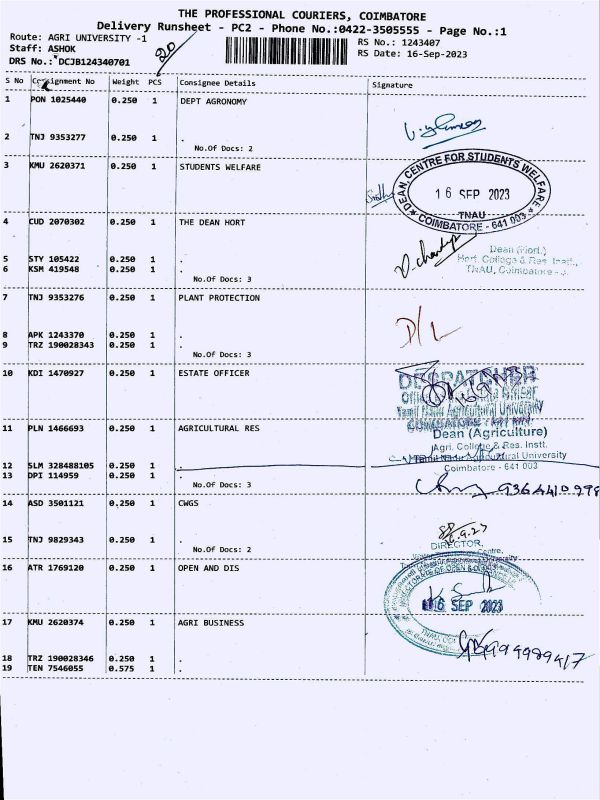 THE PROFESSIONAL COURIERS, COIMBATORE
Delivery Runsheet - PC2 - Phone No.:0422-3505555 - Page No.:1
Route: AGRI UNIVERSITY -1
RS No.: 1243407
Staff: ASHOK
RS Date: 16-Sep-2023
DRS No.: DCJB124340701
20
S No Consignment No Weight PCS Consignee Details Signature
1 PON 1025440 0.250 1 DEPT AGRONOMY
2 TNJ 9353277 0.250 1 .
No.Of Docs: 2
3 KMU 2620371 0.250 1 STUDENTS WELFARE
DEAN, CENTRE FOR STUDENTS WELFARE
16 SEP 2023
TNAU
COIMBATORE - 641 003
4 CUD 2070302 0.250 1 THE DEAN HORT
Dean (Hort.)
Hort. College & Res. Instt.,
TNAU, Coimbatore - 3.
5 STY 105422 0.250 1 .
6 KSM 419548 0.250 1 .
No.Of Docs: 3
7 TNJ 9353276 0.250 1 PLANT PROTECTION
8 APK 1243370 0.250 1 .
9 TRZ 190028343 0.250 1 .
No.Of Docs: 3
10 KDI 1470927 0.250 1 ESTATE OFFICER
DESPATCHER
Tamil Nadu Agricultural University
11 PLN 1466693 0.250 1 AGRICULTURAL RES
Dean (Agriculture)
Agri. College & Res. Instt.
Tamil Nadu Agricultural University
Coimbatore - 641 003
12 SLM 328488105 0.250 1 .
13 DPI 114959 0.250 1 .
No.Of Docs: 3
9364410998
14 ASD 3501121 0.250 1 CWGS
DIRECTOR,
15 TNJ 9829343 0.250 1 .
No.Of Docs: 2
16 ATR 1769120 0.250 1 OPEN AND DIS
16 SEP 2023
17 KMU 2620374 0.250 1 AGRI BUSINESS
18 TRZ 190028346 0.250 1 .
19 TEN 7546055 0.575 1 .